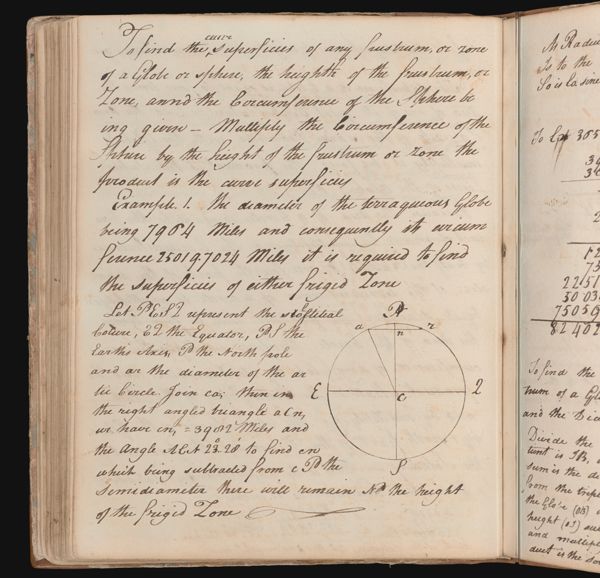 curve
To find the, superficies of any frustrum, or zone
of a Globe or sphere, the heighth of the frustrum, or
Zone, annd the Circumference of the Sphere be
ing given – Multiply the Circumference of the
Sphere by the height of the frustrum or zone the
product is the curve superficies
Example. 1. the diameter of the terraqueous Globe
being 7964 Miles and consequently it circum
ference 25019.7024 Miles it is required to find
the superficies of either frigid Zone
Let PESQ represent the solstitial
Colure, EQ the Equator, PS the
Earths Axis, P the North pole
and ar the diameter of the ar
tic Circle. Join ca; then in
the right angled triangle acn,
we have
= 3982 Miles and
the Angle
23°. 28' to find cn
which being subtracted from c P the
semidiameter there will remain
the height
of the frigid Zone
P
a
n
r
E
C
Q
S
As Radiu
Is to the
So is
sine
To
305
To find the
trum of a Gl
and the Dia
Divide the
sum is the di
from the trip
the Globe
height
and multipl
duct is the so